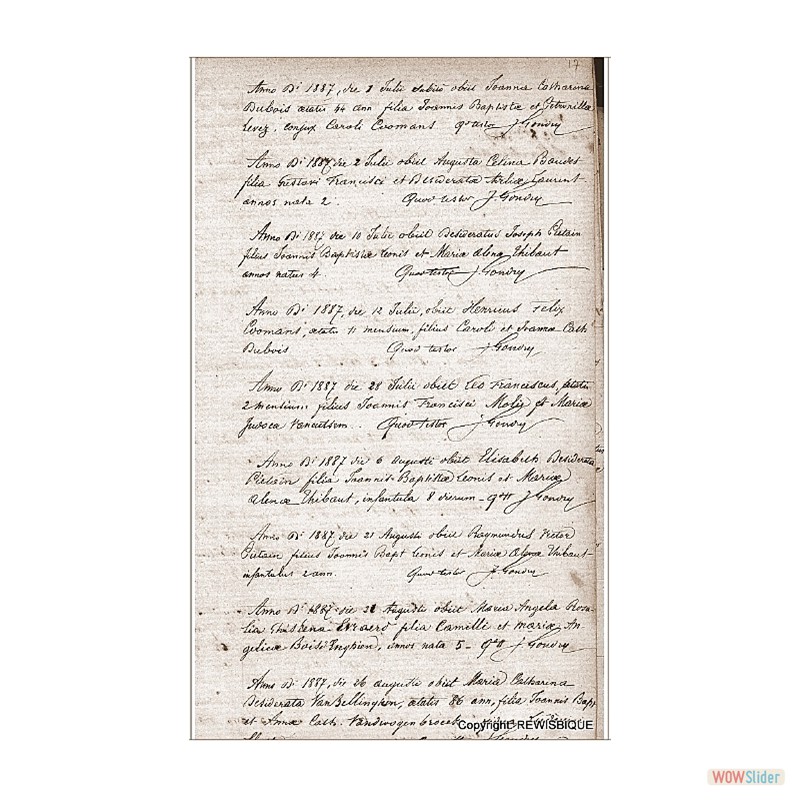 17
Anno Di 1887, die 2 Julii subito obiit Joanna Catharina
Dubois aetatis 44 ann filia Joannis Baptistae et
Levez, conjux Caroli Coomans qd testor J Gondry
Anno Di 1887 die 2 Julii obiit Augusta Celina Baudet
filia Gustavi Francisci et Desideratae Laurent
annos nata 2. Quod testor J. Gondry
Anno Di 1887 die 10 Julii obiit Desideratus Joseph Pietain
filius Joannis Baptistae Leonis et Mariae Alenae Thibaut
annos natus 4. Quod testor J. Gondry
Anno Di 1887, die 12 Julii, obiit Henricus Felix
Coomans, aetatis 11 mensium, filius Caroli et Joannae Cath
Dubois Quod testor J Gondry
Anno Di 1887 die 28 Julii obiit Leo Franciscus, aetatis
2 mensium filius Joannis Francisci et Mariae
Quod testor J Gondry
Anno Di 1887 die 6 Augusti obiit Elisabeth Desiderata
Pietain filia Joannis-Baptistae Leonis et Mariae
Alenae Thibaut, infantula 8 dierum - J Gondry
Anno Di 1887 die 21 Augusti obiit Raymundus Victor
Pietain filius Joannis Bapt Leonis et Mariae Alenae Thibaut
infantulus 2 ann. Quod testor J. Gondry
Anno Di 1887 die Augusti obiit Maria Angela Rosa-
lia Ghislena Evraerd filia Camilli et Mariae An-
gelicae Enghien, annos nata 5 - J Gondry
Anno Di 1887, die 26 Augusti obiit Maria Catharina
Desiderata VanBellinghen, aetatis 86 ann, filia Joannis Bapt
et Annae Cath.
Copyright REWISBIQUE
WOWSlider